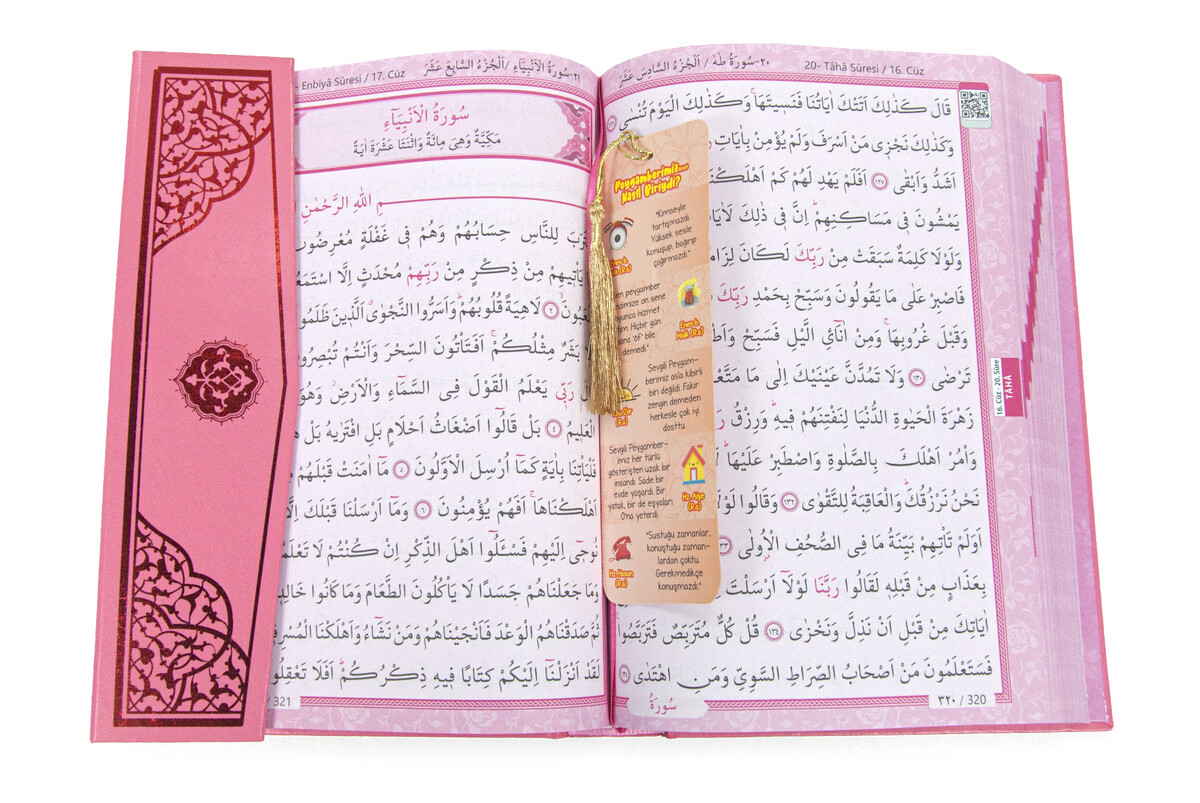 ٢٠-سُورَةُ طٰهٰ / اَلْجُزْءُ السَّادِسَ عَشَرَ
20- Tâhâ Sûresi / 16. Cüz
قَالَ كَذٰلِكَ اَتَتْكَ اٰيَاتُنَا فَنَسٖيتَهَاۚ وَكَذٰلِكَ الْيَوْمَ تُنْسٰى ﴿١٢٦﴾
وَكَذٰلِكَ نَجْزٖى مَنْ اَسْرَفَ وَلَمْ يُؤْمِنْ بِاٰيَاتِ
اَشَدُّ وَاَبْقٰى ﴿١٢٧﴾ اَفَلَمْ يَهْدِ لَهُمْ كَمْ اَهْلَكْنَا
يَمْشُونَ فٖى مَسَاكِنِهِمْۜ اِنَّ فٖى ذٰلِكَ لَاٰيَاتٍ
وَلَوْلَا كَلِمَةٌ سَبَقَتْ مِنْ رَبِّكَ لَكَانَ لِزَامًا
فَاصْبِرْ عَلٰى مَا يَقُولُونَ وَسَبِّحْ بِحَمْدِ رَبِّكَ
وَقَبْلَ غُرُوبِهَاۚ وَمِنْ اٰنَٓائِ الَّيْلِ فَسَبِّحْ وَاَطْرَافَ
تَرْضٰى ﴿١٣٠﴾ وَلَا تَمُدَّنَّ عَيْنَيْكَ اِلٰى مَا مَتَّعْنَا
زَهْرَةَ الْحَيٰوةِ الدُّنْيَا لِنَفْتِنَهُمْ فٖيهِۜ وَرِزْقُ
وَأْمُرْ اَهْلَكَ بِالصَّلٰوةِ وَاصْطَبِرْ عَلَيْهَاۜ
نَحْنُ نَرْزُقُكَۜ وَالْعَاقِبَةُ لِلتَّقْوٰى ﴿١٣٢﴾ وَقَالُوا لَوْلَا
اَوَلَمْ تَأْتِهِمْ بَيِّنَةُ مَا فِى الصُّحُفِ الْاُو۫لٰى ﴿١٣٣﴾
بِعَذَابٍ مِنْ قَبْلِهٖ لَقَالُوا رَبَّنَا لَوْلَٓا اَرْسَلْتَ
اٰيَاتِكَ مِنْ قَبْلِ اَنْ نَذِلَّ وَنَخْزٰى ﴿١٣٤﴾ قُلْ كُلٌّ مُتَرَبِّصٌ فَتَرَبَّصُوا
فَسَتَعْلَمُونَ مَنْ اَصْحَابُ الصِّرَاطِ السَّوِيِّ وَمَنِ اهْتَدٰى
٣٢٠ / 320
سُورَةُ
16. Cüz - 20. Sûre
TÂHÂ
٢١-سُورَةُ الْاَنْبِيَٓاءِ / اَلْجُزْءُ السَّابِعَ عَشَرَ
Enbiyâ Sûresi / 17. Cüz
سُورَةُ الْاَنْبِيَٓاءِ
مَكِّيَّةٌ وَهِىَ مِائَةٌ وَاثْنَتَا عَشْرَةَ اٰيَةً
اللّٰهِ الرَّحْمٰنِ
لِلنَّاسِ حِسَابُهُمْ وَهُمْ فٖى غَفْلَةٍ مُعْرِضُونَ
يَأْتٖيهِمْ مِنْ ذِكْرٍ مِنْ رَبِّهِمْ مُحْدَثٍ اِلَّا اسْتَمَعُوهُ
﴿٢﴾ لَاهِيَةً قُلُوبُهُمْۜ وَاَسَرُّوا النَّجْوٰىۗ اَلَّذٖينَ ظَلَمُوا
بَشَرٌ مِثْلُكُمْۚ اَفَتَأْتُونَ السِّحْرَ وَاَنْتُمْ تُبْصِرُونَ
رَبّٖى يَعْلَمُ الْقَوْلَ فِى السَّمَٓاءِ وَالْاَرْضِۘ وَهُوَ
الْعَلٖيمُ ﴿٤﴾ بَلْ قَالُٓوا اَضْغَاثُ اَحْلَامٍ بَلِ افْتَرٰيهُ بَلْ هُوَ
فَلْيَأْتِنَا بِاٰيَةٍ كَمَٓا اُرْسِلَ الْاَوَّلُونَ ﴿٥﴾ مَٓا اٰمَنَتْ قَبْلَهُمْ
اَهْلَكْنَاهَاۚ اَفَهُمْ يُؤْمِنُونَ ﴿٦﴾ وَمَٓا اَرْسَلْنَا قَبْلَكَ اِلَّا
نُوحٖٓى اِلَيْهِمْ فَسْـَٔلُٓوا اَهْلَ الذِّكْرِ اِنْ كُنْتُمْ لَا تَعْلَمُونَ
وَمَا جَعَلْنَاهُمْ جَسَدًا لَا يَأْكُلُونَ الطَّعَامَ وَمَا كَانُوا خَالِدٖينَ
ثُمَّ صَدَقْنَاهُمُ الْوَعْدَ فَاَنْجَيْنَاهُمْ وَمَنْ نَشَٓاءُ وَاَهْلَكْنَا الْمُسْرِفٖينَ
لَقَدْ اَنْزَلْنَٓا اِلَيْكُمْ كِتَابًا فٖيهِ ذِكْرُكُمْۜ اَفَلَا تَعْقِلُونَ
/ 321
Peygamberimiz...
Nasıl Biriydi?
"Kimseyle
tartışmazdı.
Yüksek sesle
konuşup, bağırıp
çağırmazdı."
peygamber
on sene
hizmet
Hiçbir gün
'of' bile
demedi."
Enes b.
Malik (R.a)
Sevgili Peygam-
berimiz asla kibirli
biri değildi. Fakir
zengin demeden
herkesle çok iyi
dosttu.
(R.a)
Sevgili Peygamber-
imiz her türlü
gösterişten uzak bir
insandı. Sade bir
evde yaşardı. Bir
yatak, bir de eşyaları
O'na yeterdi.
Hz. Aişe
(R.a)
"Sustuğu zamanlar,
konuştuğu zaman-
lardan çoktu.
Gerekmedikçe
konuşmazdı."
Hz. Hasan
(R.a)